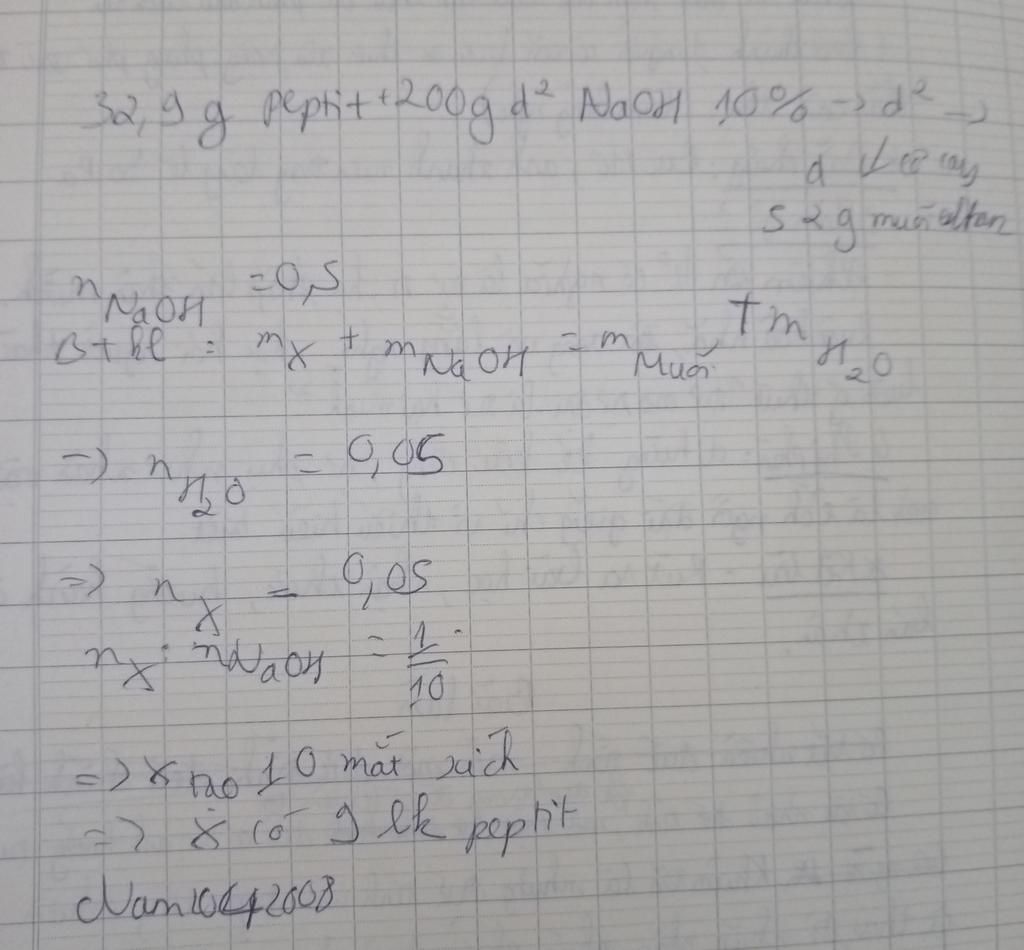 32,9 g peptit + 200g d² NaOH 10% → d² →
d ↓ cô cạy
52g muối
n NaOH = 0,5
BTKl : m X + m NaOH = m Muối + m H₂O
→) n H₂O = 0,05
=> n X = 0,05
n X : n NaOH = 1/10
=> X tạo 10 mắt xích
=> X có 9 lk peptit
Nam1042008